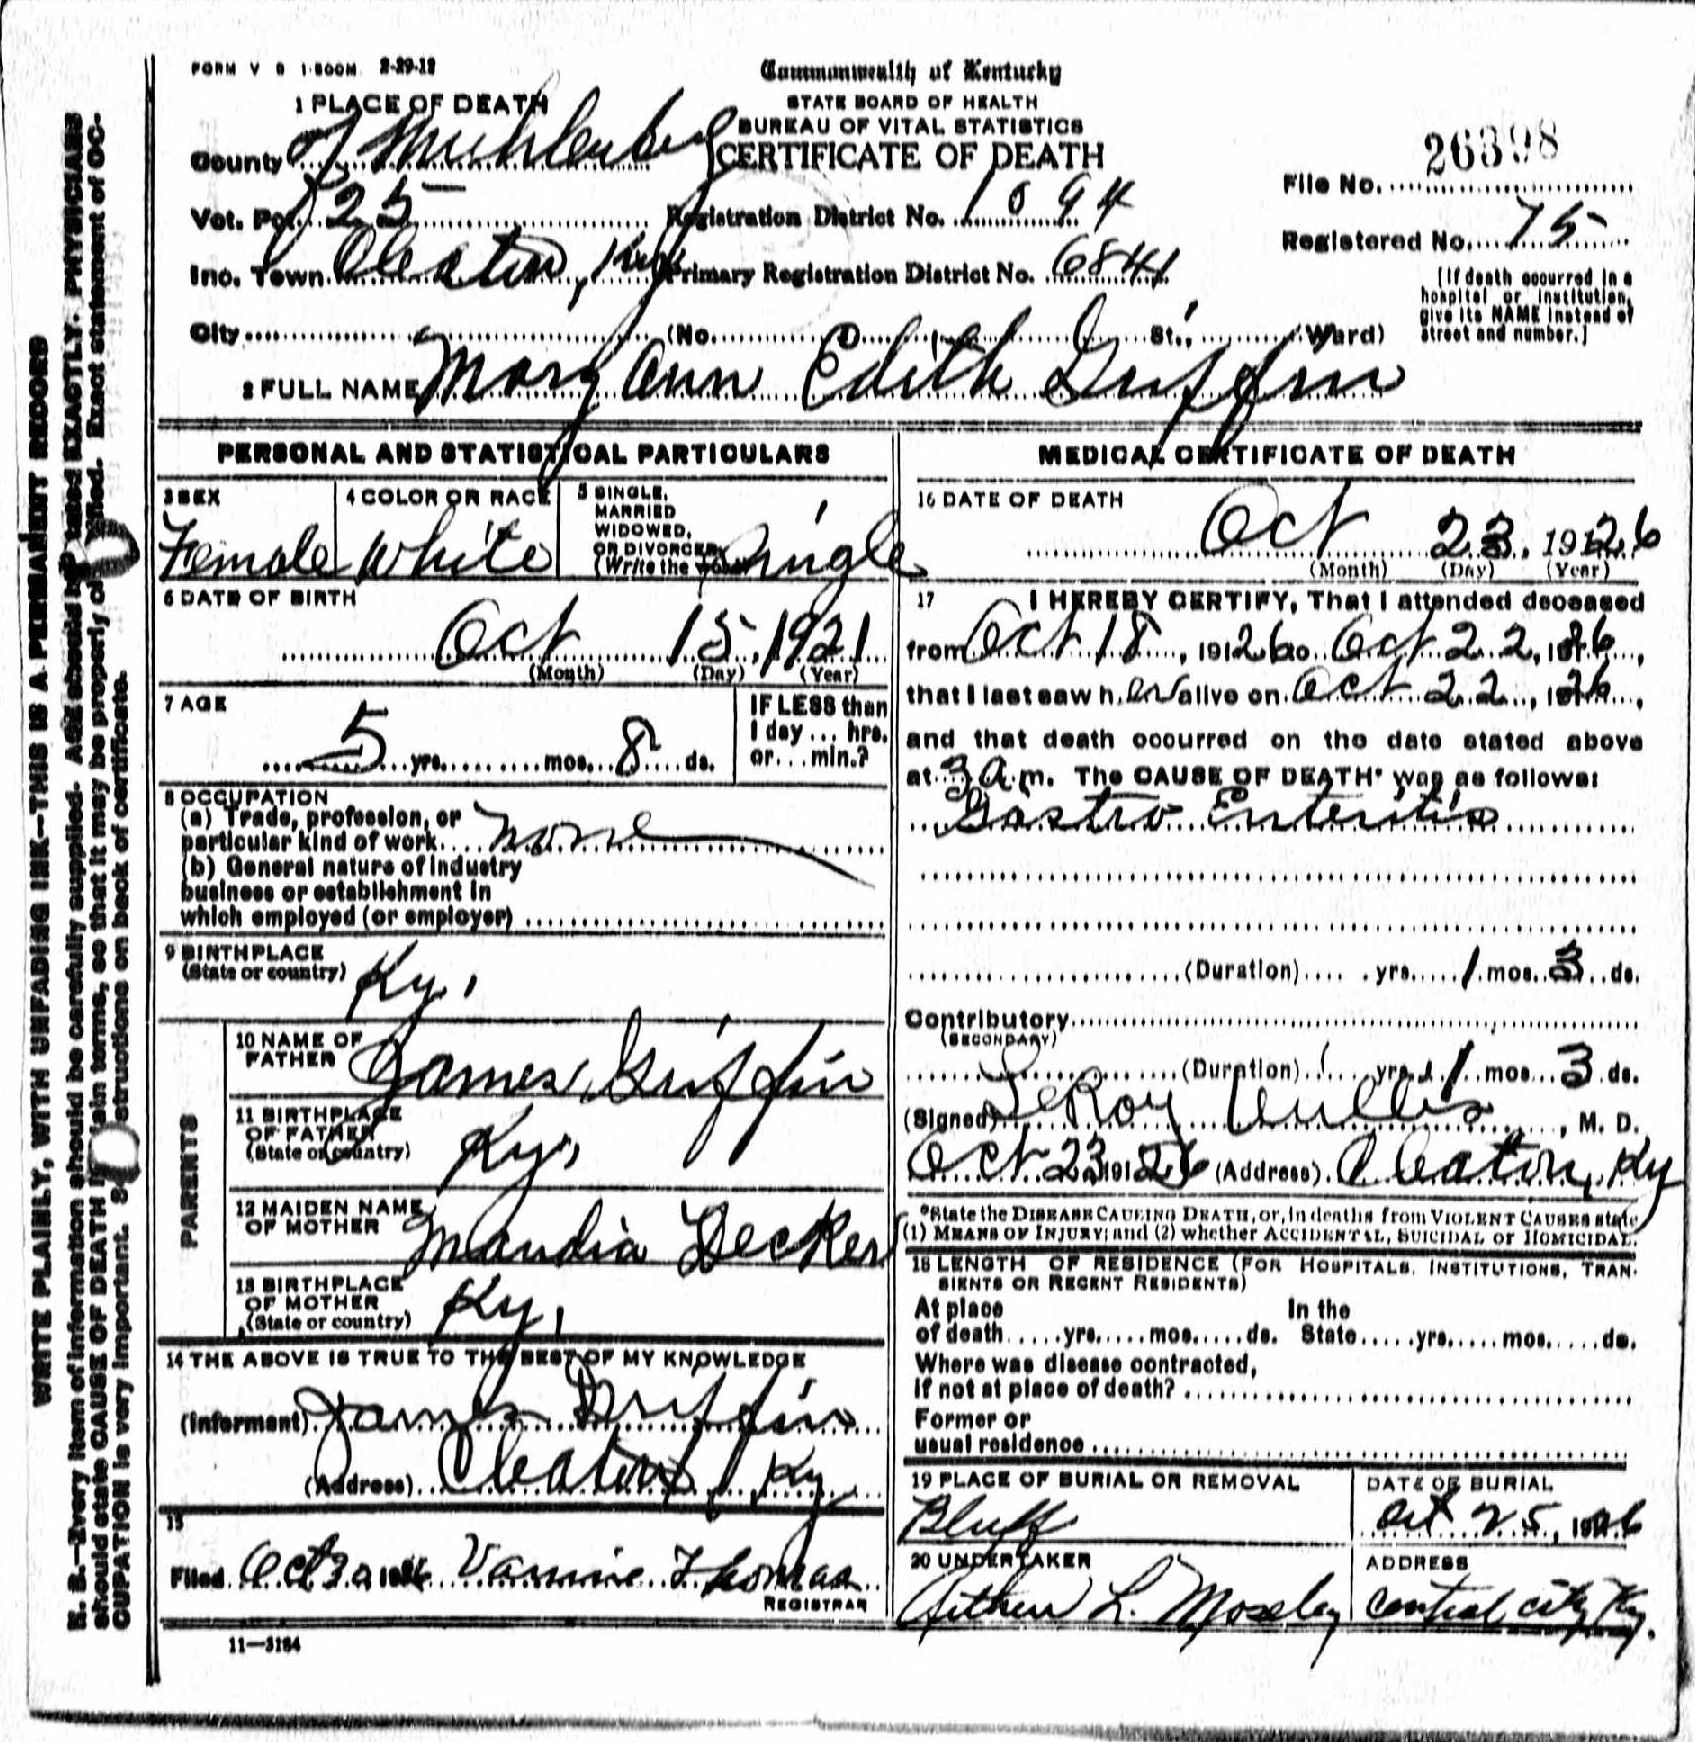 FORM V S 1-500M 2-29-12
Commonwealth of Kentucky
STATE BOARD OF HEALTH
BUREAU OF VITAL STATISTICS
CERTIFICATE OF DEATH
1 PLACE OF DEATH
County of Muhlenberg
Vot. Pct. 25
Inc. Town Cleaton, Ky
City (No. St., Ward)
Registration District No. 1094
Primary Registration District No. 6841
File No. 26398
Registered No. 75
[If death occurred in a
hospital or institution,
give its NAME instead of
street and number.]
2 FULL NAME Mary Ann Edith Griffin
PERSONAL AND STATISTICAL PARTICULARS
3 SEX
Female
4 COLOR OR RACE
White
5 SINGLE,
MARRIED
WIDOWED,
OR DIVORCED
(Write the word)
Single
6 DATE OF BIRTH
Oct 15, 1921
(Month) (Day) (Year)
7 AGE
5 yrs. mos. 8 ds.
IF LESS than
1 day ... hrs.
or ... min.?
8 OCCUPATION
(a) Trade, profession, or
particular kind of work none
(b) General nature of industry
business or establishment in
which employed (or employer)
9 BIRTHPLACE
(State or country) Ky.
PARENTS
10 NAME OF
FATHER James Griffin
11 BIRTHPLACE
OF FATHER
(State or country) Ky,
12 MAIDEN NAME
OF MOTHER Maudia Decker
13 BIRTHPLACE
OF MOTHER
(State or country) Ky,
14 THE ABOVE IS TRUE TO THE BEST OF MY KNOWLEDGE
(Informant) James Griffin
(Address) Cleaton, Ky
15
Filed Oct 30 1926 Vannie Thomas
REGISTRAR
11-3184
MEDICAL CERTIFICATE OF DEATH
16 DATE OF DEATH
Oct 23, 1926
(Month) (Day) (Year)
17 I HEREBY CERTIFY, That I attended deceased
from Oct 18, 1926 to Oct 22, 1926,
that I last saw her alive on Oct 22, 1926,
and that death occurred on the date stated above
at 3 a.m. The CAUSE OF DEATH* was as follows:
Gastro Enteritis
(Duration) yrs. 1 mos. 3 ds.
Contributory
(SECONDARY)
(Duration) yrs. 1 mos. 3 ds.
(Signed) LeRoy , M. D.
Oct 23 1926 (Address) Cleaton, Ky
*State the DISEASE CAUSING DEATH, or, in deaths from VIOLENT CAUSES state
(1) MEANS OF INJURY; and (2) whether ACCIDENTAL, SUICIDAL or HOMICIDAL.
18 LENGTH OF RESIDENCE (FOR HOSPITALS, INSTITUTIONS, TRAN-
SIENTS OR RECENT RESIDENTS)
At place In the
of death yrs. mos. ds. State yrs. mos. ds.
Where was disease contracted,
if not at place of death?
Former or
usual residence
19 PLACE OF BURIAL OR REMOVAL
Bluff
DATE OF BURIAL
Oct 25, 1926
20 UNDERTAKER
Arthur L. Moseley
ADDRESS
Central City Ky.
WRITE PLAINLY, WITH UNFADING INK—THIS IS A PERMANENT RECORD
N. B.—Every item of information should be carefully supplied. AGE should be stated EXACTLY. PHYSICIANS
should state CAUSE OF DEATH in plain terms, so that it may be properly classified. Exact statement of OC-
CUPATION is very important. See instructions on back of certificate.